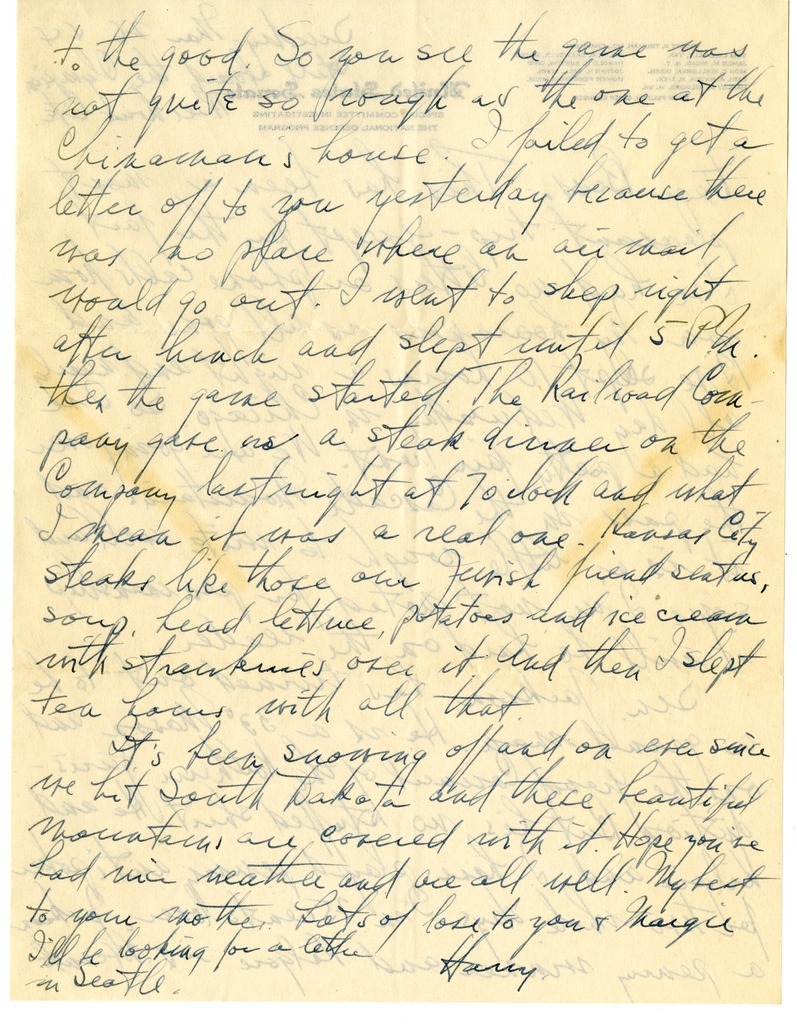 to the good. So you see the game was
not quite so rough as the one at the
Chinaman's house. I failed to get a
letter off to you yesterday because there
was no place where an air mail
would go out. I went to sleep right
after lunch and slept until 5 P.M.
then the game started. The Railroad Com-
pany gave us a steak dinner on the
Company last night at 7 o'clock and what
I mean it was a real one. Kansas City
steaks like those our Jewish friend sent us,
soup, head lettuce, potatoes and ice cream
with strawberries over it. And then I slept
ten hours with all that.
It's been snowing off and on ever since
we hit South Dakota and these beautiful
mountains are covered with it. Hope you've
had nice weather and are all well. My best
to your mother. Lots of love to you & Margie
I'll be looking for a letter
in Seatle.
Harry